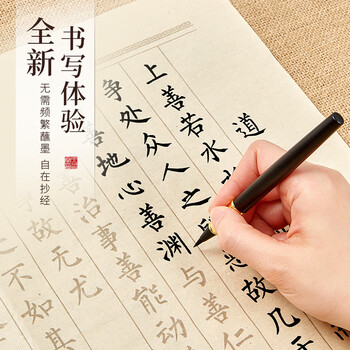 全新
书写体验
无需频繁蘸墨 自在抄经
道
上善若水
争处众人之
故几
善地心善渊与善仁
治事善能动
故无尤
之不如其